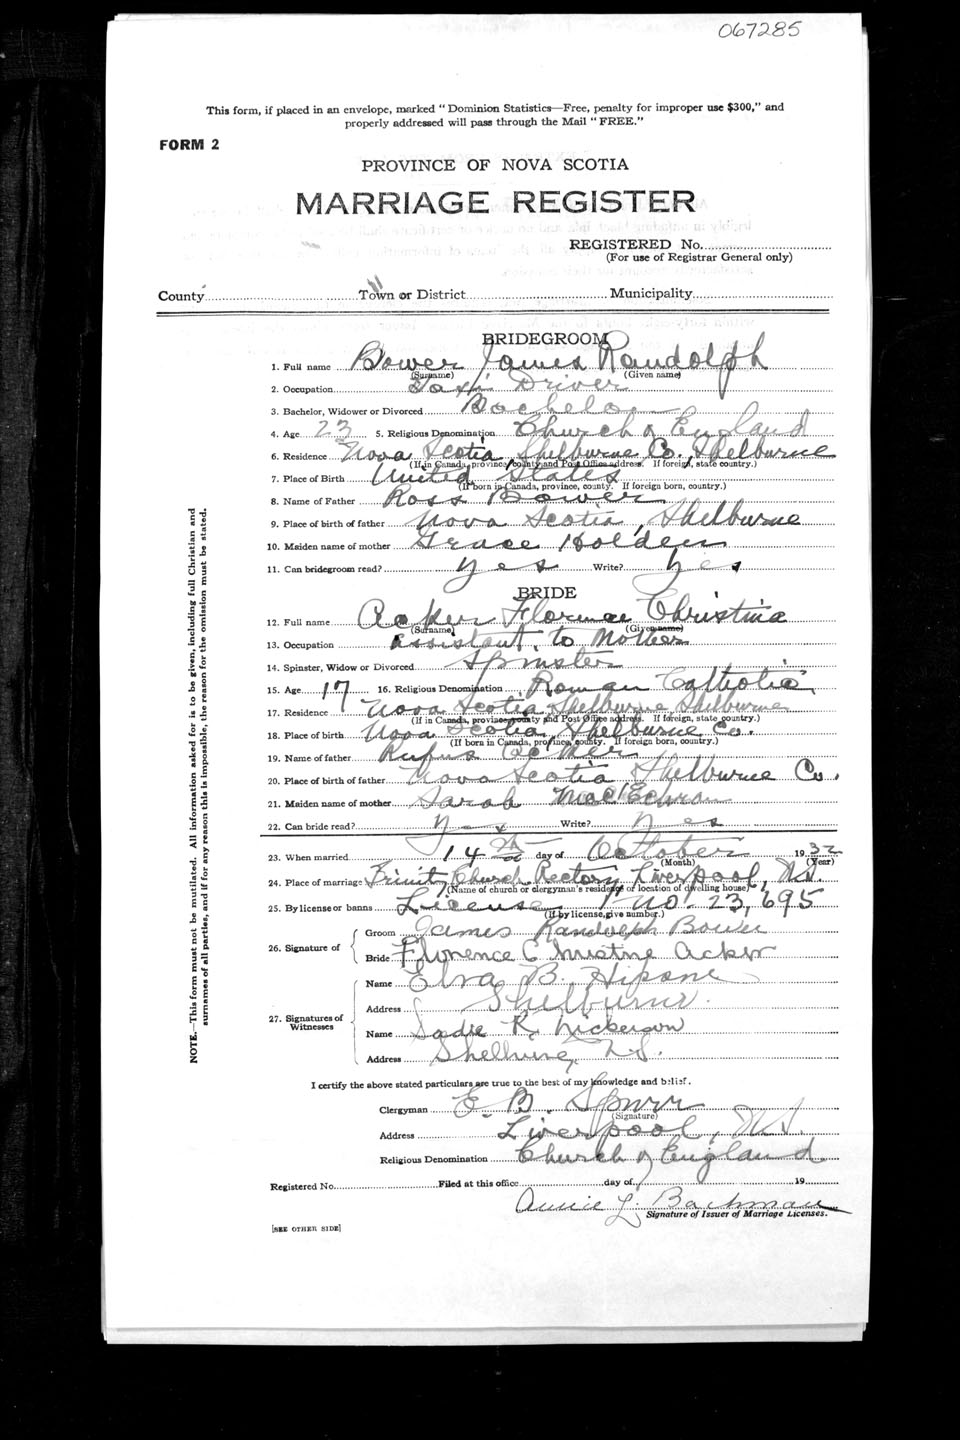 067285
This form, if placed in an envelope, marked "Dominion Statistics—Free, penalty for improper use $300," and
properly addressed will pass through the Mail "FREE."
FORM 2
PROVINCE OF NOVA SCOTIA
MARRIAGE REGISTER
REGISTERED No.
(For use of Registrar General only)
County Town or District Municipality
BRIDEGROOM
1. Full name Bower James Randolph
(Surname) (Given name)
2. Occupation Taxi Driver
3. Bachelor, Widower or Divorced Bachelor
4. Age 23 5. Religious Denomination Church of England
6. Residence Nova Scotia Shelburne Co. Shelburne
(If in Canada, province, county and Post Office address. If foreign, state country.)
7. Place of Birth United States
(If born in Canada, province, county. If foreign born, country.)
8. Name of Father Ross Bower
9. Place of birth of father Nova Scotia, Shelburne
10. Maiden name of mother Grace Holden
11. Can bridegroom read? yes Write? yes
BRIDE
12. Full name Acker Florence Christine
(Surname) (Given name)
13. Occupation assistant to Mother
14. Spinster, Widow or Divorced Spinster
15. Age 17 16. Religious Denomination Roman Catholic
17. Residence Nova Scotia Shelburne Shelburne
(If in Canada, province, county and Post Office address. If foreign, state country.)
18. Place of birth Nova Scotia, Shelburne Co.
(If born in Canada, province, county. If foreign born, country.)
19. Name of father Rufus Acker
20. Place of birth of father Nova Scotia Shelburne Co.
21. Maiden name of mother Sarah
22. Can bride read? Yes Write? Yes
23. When married 14th day of October 1932
(Month) (Year)
24. Place of marriage Trinity Church Rectory, Liverpool, N.S.
(Name of church or clergyman's residence or location of dwelling house)
25. By license or banns License No. 23,695
(If by license, give number.)
26. Signature of
Groom James Randolph Bower
Bride Florence Christine Acker
27. Signatures of Witnesses
Name Elva B.
Address Shelburne.
Name Sadie R. Nickerson
Address Shelburne, N.S.
I certify the above stated particulars are true to the best of my knowledge and belief.
Clergyman E. B. Spurr
(Signature)
Address Liverpool, N.S.
Religious Denomination Church of England
Registered No. Filed at this office day of 19
Annie L. Bachman
Signature of Issuer of Marriage Licenses.
[SEE OTHER SIDE]
NOTE.—This form must not be mutilated. All information asked for is to be given, including full Christian and
surnames of all parties, and if for any reason this is impossible, the reason for the omission must be stated.